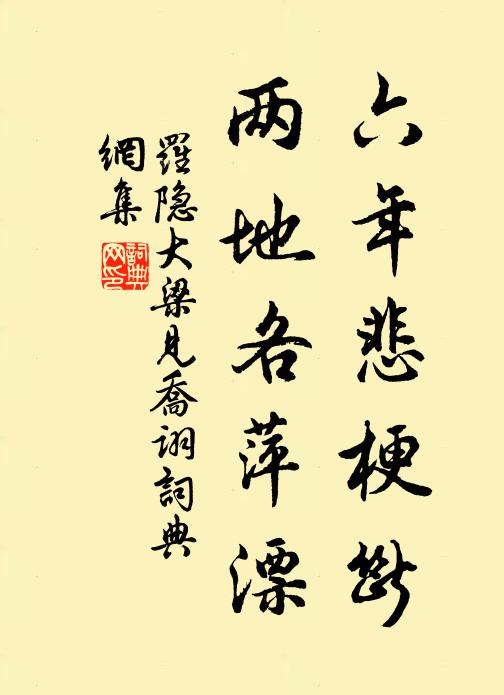 六年悲梗断
两地各萍漂
羅隐大梁見喬詡詞典
網集
詞典网印